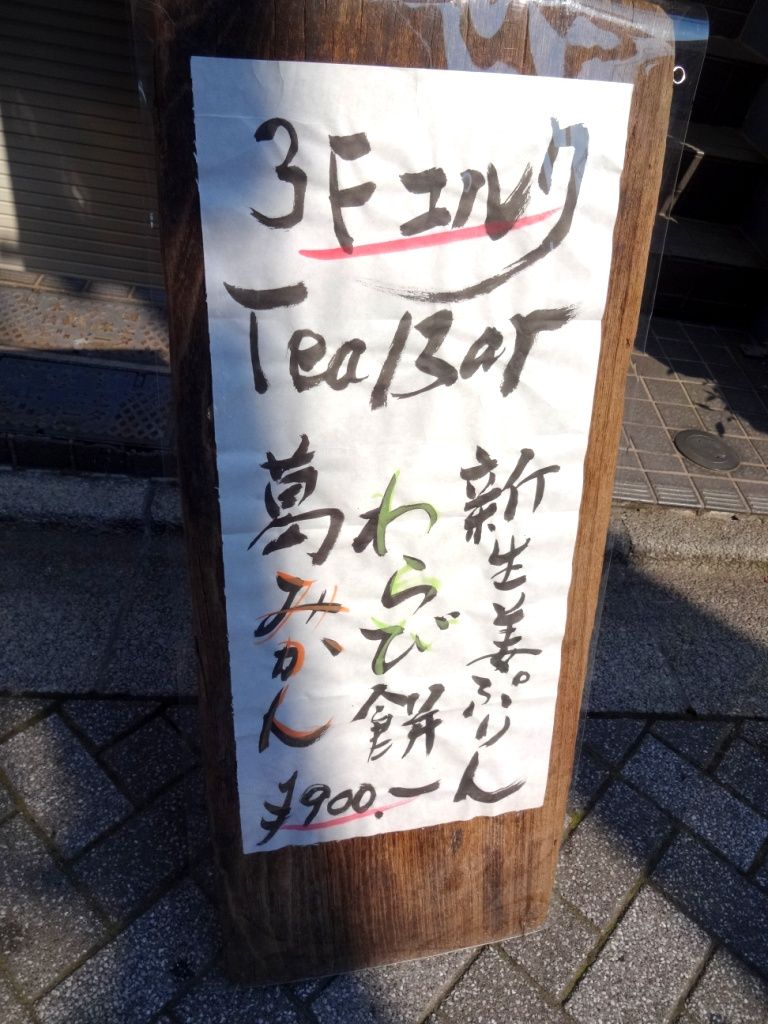 3Fエルク
Tea Bar
新生姜ぷりん
わらび餅
葛みかん
¥900.ー